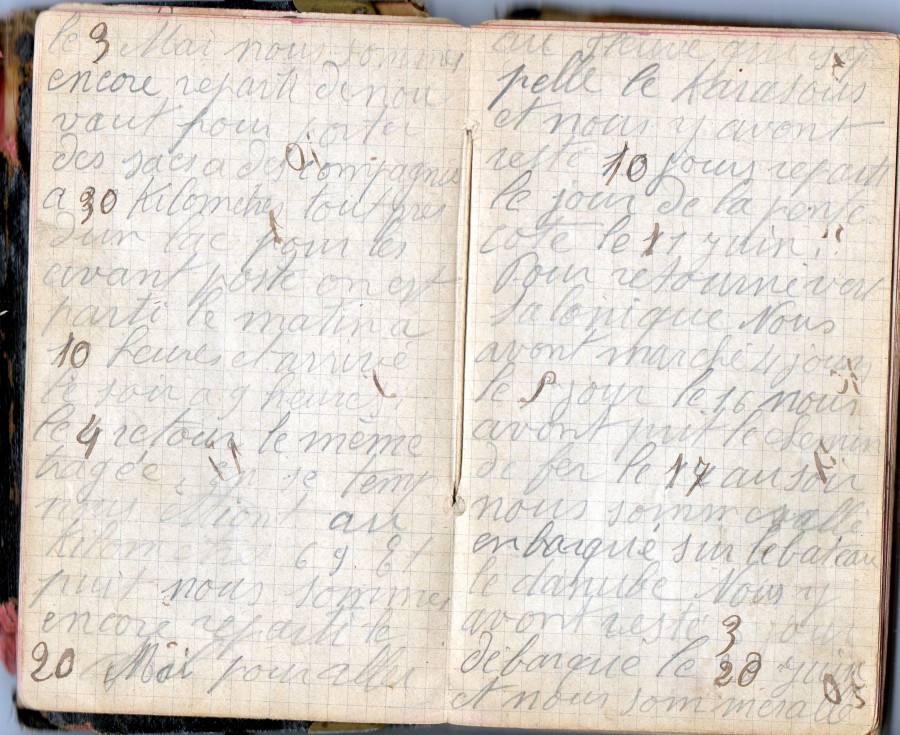 le 3 Mai nous sommes
encore reparti denou
vaut pour porter
des sacs a des compagnies
a 30 Kilometres tout pres
dun lac pour les
avant poste on est
parti le matin a
10 heures et arrivé
le soir a 9 heures.
le 4 retour le même
tragée en se temp
nous ettiont au
Kilometre 69. Et
puit nous sommes
encore reparti le
20 Mai pour aller
au fleuve qui sap
pelle le Karasous
et nous y avont
resté 10 jours reparti
le jour de la pente
cote le 11 juin,
Pour retourné vert
Salonique Nous
avont marché 4 jour
le 5 jour le 16 nous
avont prit le chemin
de fer le 17 au soir
nous somme allé
enbarqué sur le bateau
le danube Nous y
avont resté 3 jour
débarque le 20 juin
et nous sommes allé